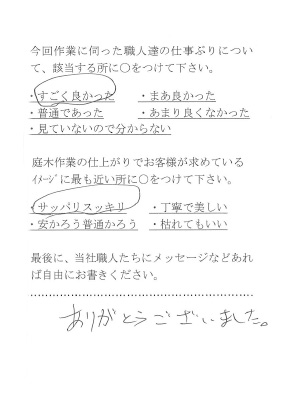 今回作業に伺った職人達の仕事ぶりについ
て、該当する所に○をつけて下さい。
・すごく良かった ・まあ良かった
・普通であった ・あまり良くなかった
・見ていないので分からない
庭木作業の仕上がりでお客様が求めている
ｲﾒｰｼﾞに最も近い所に○をつけて下さい。
・サッパリスッキリ ・丁寧で美しい
・安かろう普通かろう ・枯れてもいい
最後に、当社職人たちにメッセージなどあれ
ば自由にお書きください。
ありがとうございました。